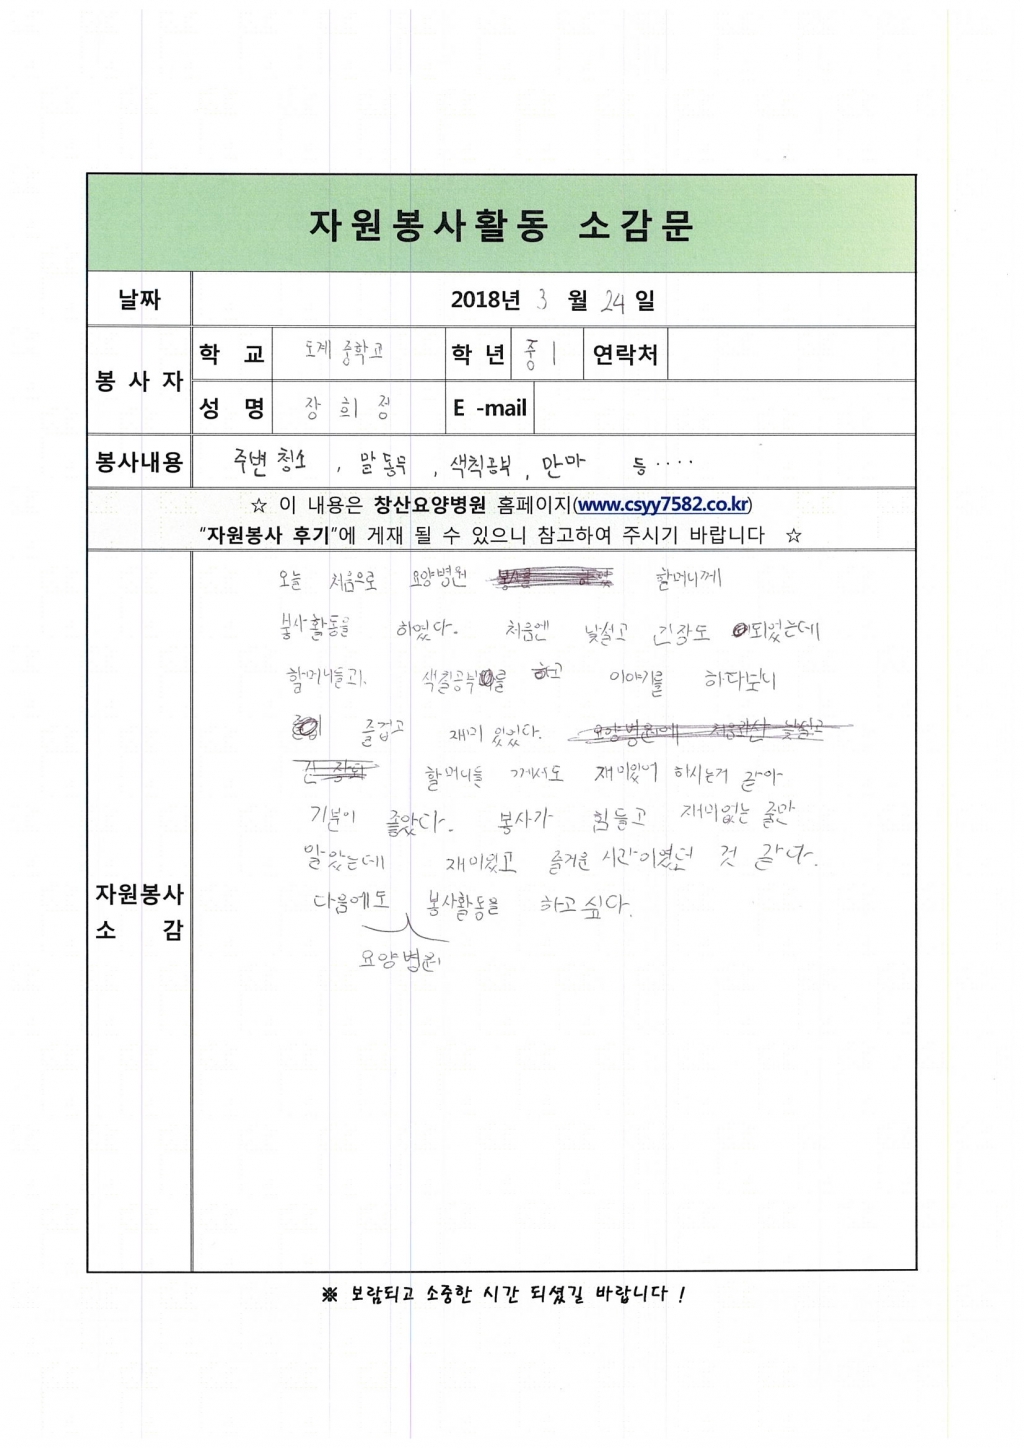 자원봉사활동 소감문
날짜 2018년 3 월 24 일
봉사자 학 교 도계 중학교 학년 중 1 연락처
성 명 장 희 정 E -mail
봉사내용 주변 청소 , 말동무 , 색칙공부 , 안마 등 ....
☆ 이 내용은 창산요양병원 홈페이지(www.csyy7582.co.kr)
"자원봉사 후기"에 게재 될 수 있으니 참고하여 주시기 바랍니다 ☆
자원봉사 소 감
오늘 처음으로 요양병원 할머니께
봉사활동을 하였다. 처음엔 낯설고 긴장도 되었는데
할머니들과 색칠공부를 하고 이야기를 하다보니
즐겁고 재미 있었다. 요양병원에 처음와선 낯설고
긴장되 할머니들 께서도 재미있어 하시는거 같아
기분이 좋았다. 봉사가 힘들고 재미없는 줄만
알았는데 재미있고 즐거운 시간이였던 것 같다.
다음에도 봉사활동을 하고 싶다.
요양병원
※ 보람되고 소중한 시간 되셨길 바랍니다 !